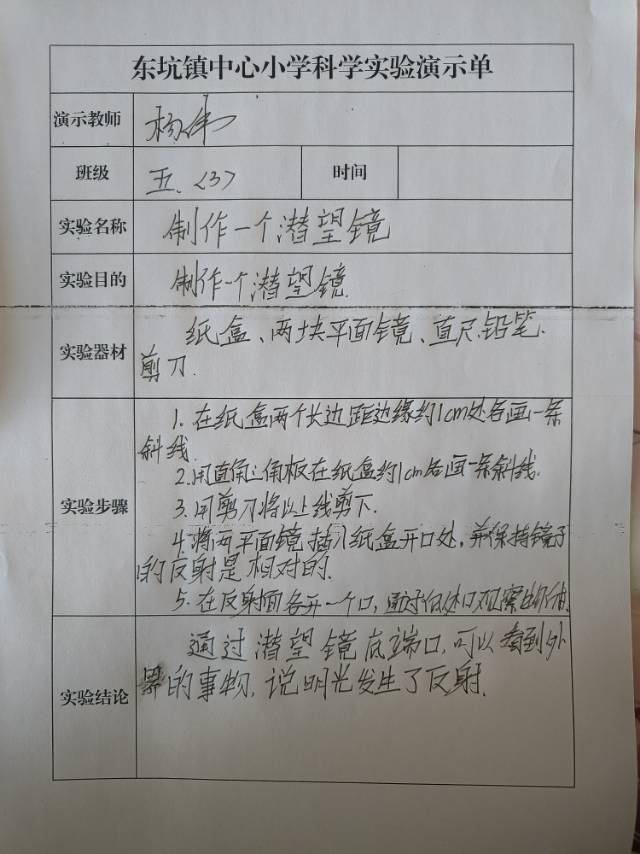 东坑镇中心小学科学实验演示单
演示教师 杨伟
班级 五.〈3〉 时间
实验名称 制作一个潜望镜
实验目的 制作一个潜望镜.
实验器材 纸盒、两块平面镜、直尺.铅笔.
剪刀.
实验步骤 1. 在纸盒两个长边距边缘约1cm处各画一条
斜线.
2.用直角三角板在纸盒约1cm各画一条斜线.
3.用剪刀将以上线剪下.
4.将两平面镜插入纸盒开口处,并保持镜子
的反射是相对的.
5.在反射面各开一个口,通过低处口观察
实验结论 通过潜望镜底端口,可以看到外
界的事物,说明光发生了反射.